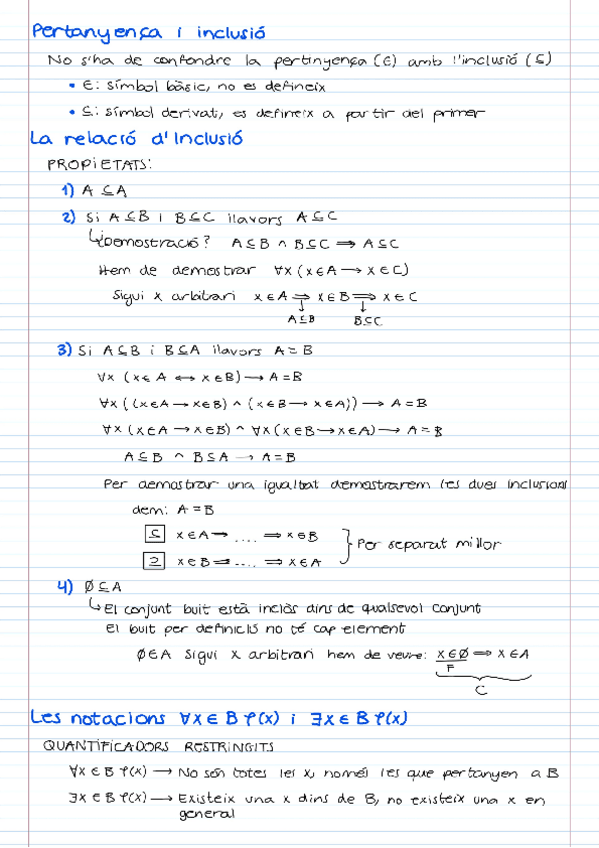 Pertanyença i inclusió
No s'ha de confondre la pertinyença (∈) amb l'inclusió (⊆)
• ∈: símbol bàsic, no es defineix
• ⊆: símbol derivat, es defineix a partir del primer
La relació d'Inclusió
PROPIETATS:
1) A ⊆ A
2) Si A ⊆ B i B ⊆ C llavors A ⊆ C
↳ ¿Demostració? A ⊆ B ∧ B ⊆ C ⟹ A ⊆ C
Hem de demostrar ∀x (x ∈ A → x ∈ C)
Sigui x arbitrari x ∈ A ⟹ x ∈ B ⟹ x ∈ C
↓ ↓
A ⊆ B B ⊆ C
3) Si A ⊆ B i B ⊆ A llavors A = B
∀x (x ∈ A ↔ x ∈ B) → A = B
∀x ((x ∈ A → x ∈ B) ∧ (x ∈ B → x ∈ A)) → A = B
∀x (x ∈ A → x ∈ B) ∧ ∀x (x ∈ B → x ∈ A) → A = B
A ⊆ B ∧ B ⊆ A → A = B
Per demostrar una igualtat demostrarem les dues inclusions
dem: A = B
⊆ x ∈ A ⟹ .... ⟹ x ∈ B
⊇ x ∈ B ⟹ .... ⟹ x ∈ A
} Per separat millor
4) ∅ ⊆ A
↳ El conjunt buit està inclòs dins de qualsevol conjunt
El buit per definició no té cap element
∅ ∈ A Sigui x arbitrari hem de veure: x ∈ ∅ ⟹ x ∈ A
F
C
Les notacions ∀x ∈ B φ(x) i ∃x ∈ B φ(x)
QUANTIFICADORS RESTRINGITS
∀x ∈ B φ(x) → No són totes les x, només les que pertanyen a B
∃x ∈ B φ(x) → Existeix una x dins de B, no existeix una x en
general